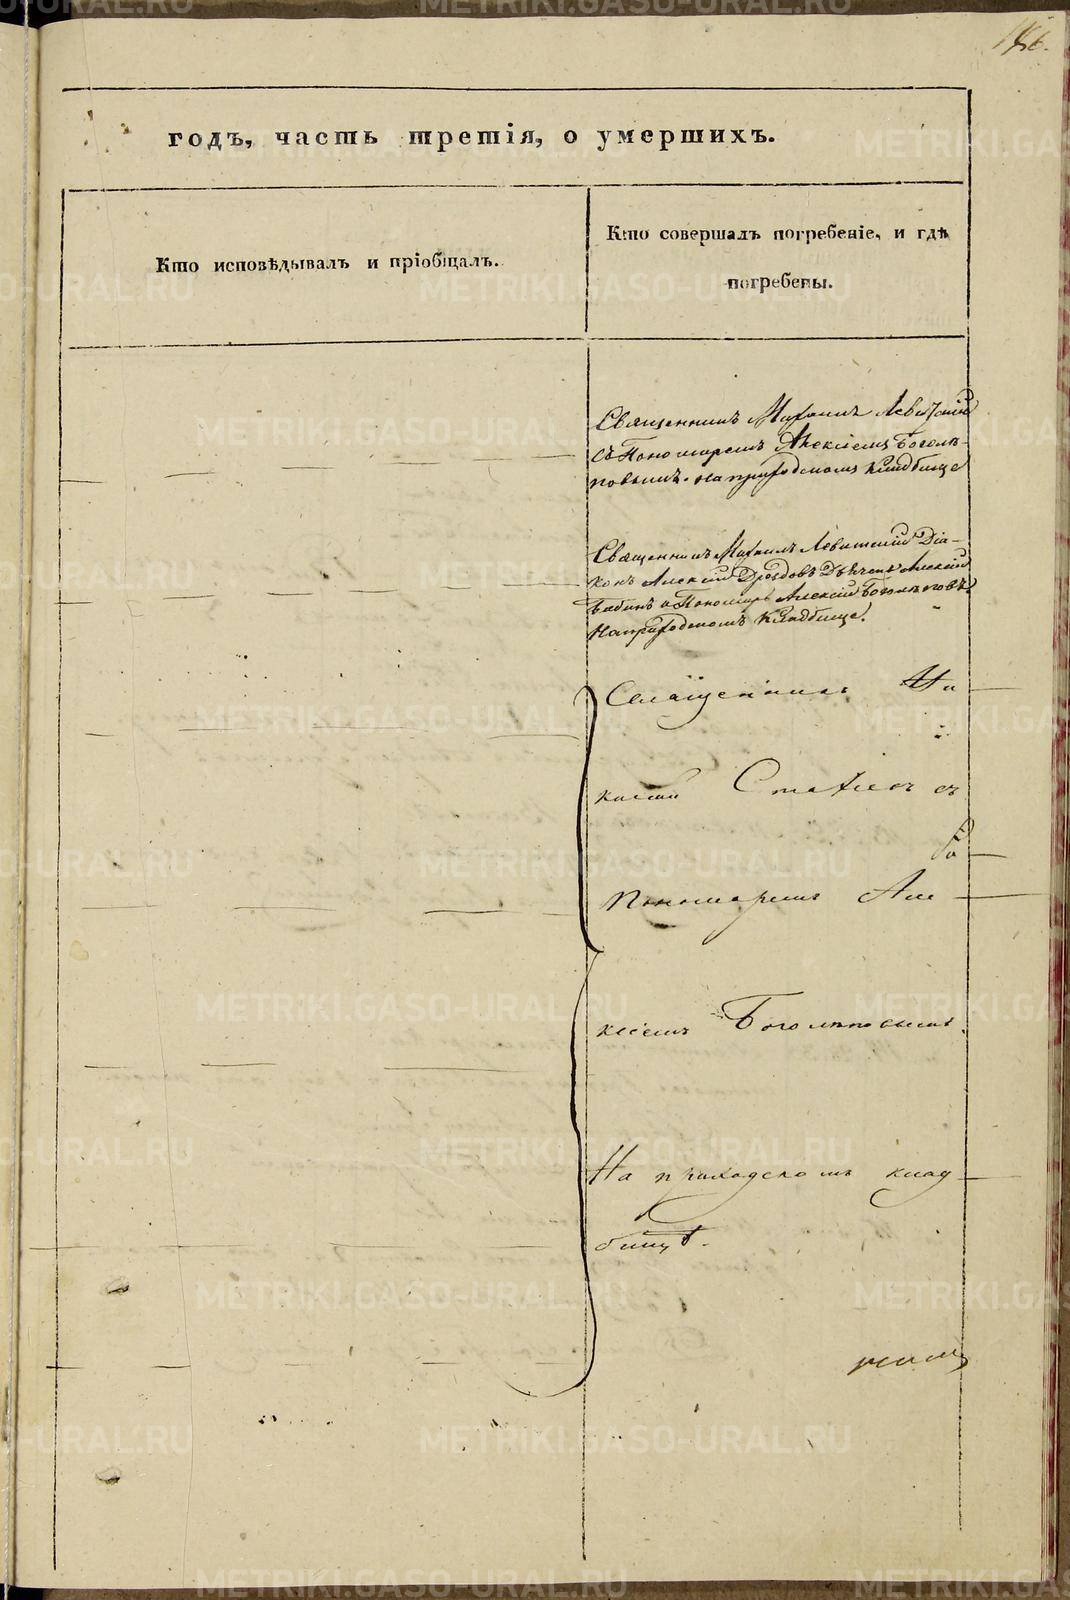 годъ, часть третія, о умершихъ.
Кто исповѣдывалъ и пріобщалъ.
Кто совершалъ погребеніе, и гдѣ
погребены.
Священникъ Михаилъ Левитскій
съ Пономаремъ Алексіемъ Боголѣ-
повымъ. на приходскомъ кладбище
Священникъ Михаилъ Левитскій Діа-
конъ Алексій Дроздовъ Дьячекъ Алексій
Бабинъ и Пономарь Алексій Боголѣповъ.
На приходскомъ кладбище.
Священникъ
Стахіевъ съ
Пономаремъ Але
ксіемъ Боголѣповымъ.
На приходскомъ клад
бищѣ.
METRIKI.GASO-URAL.RU